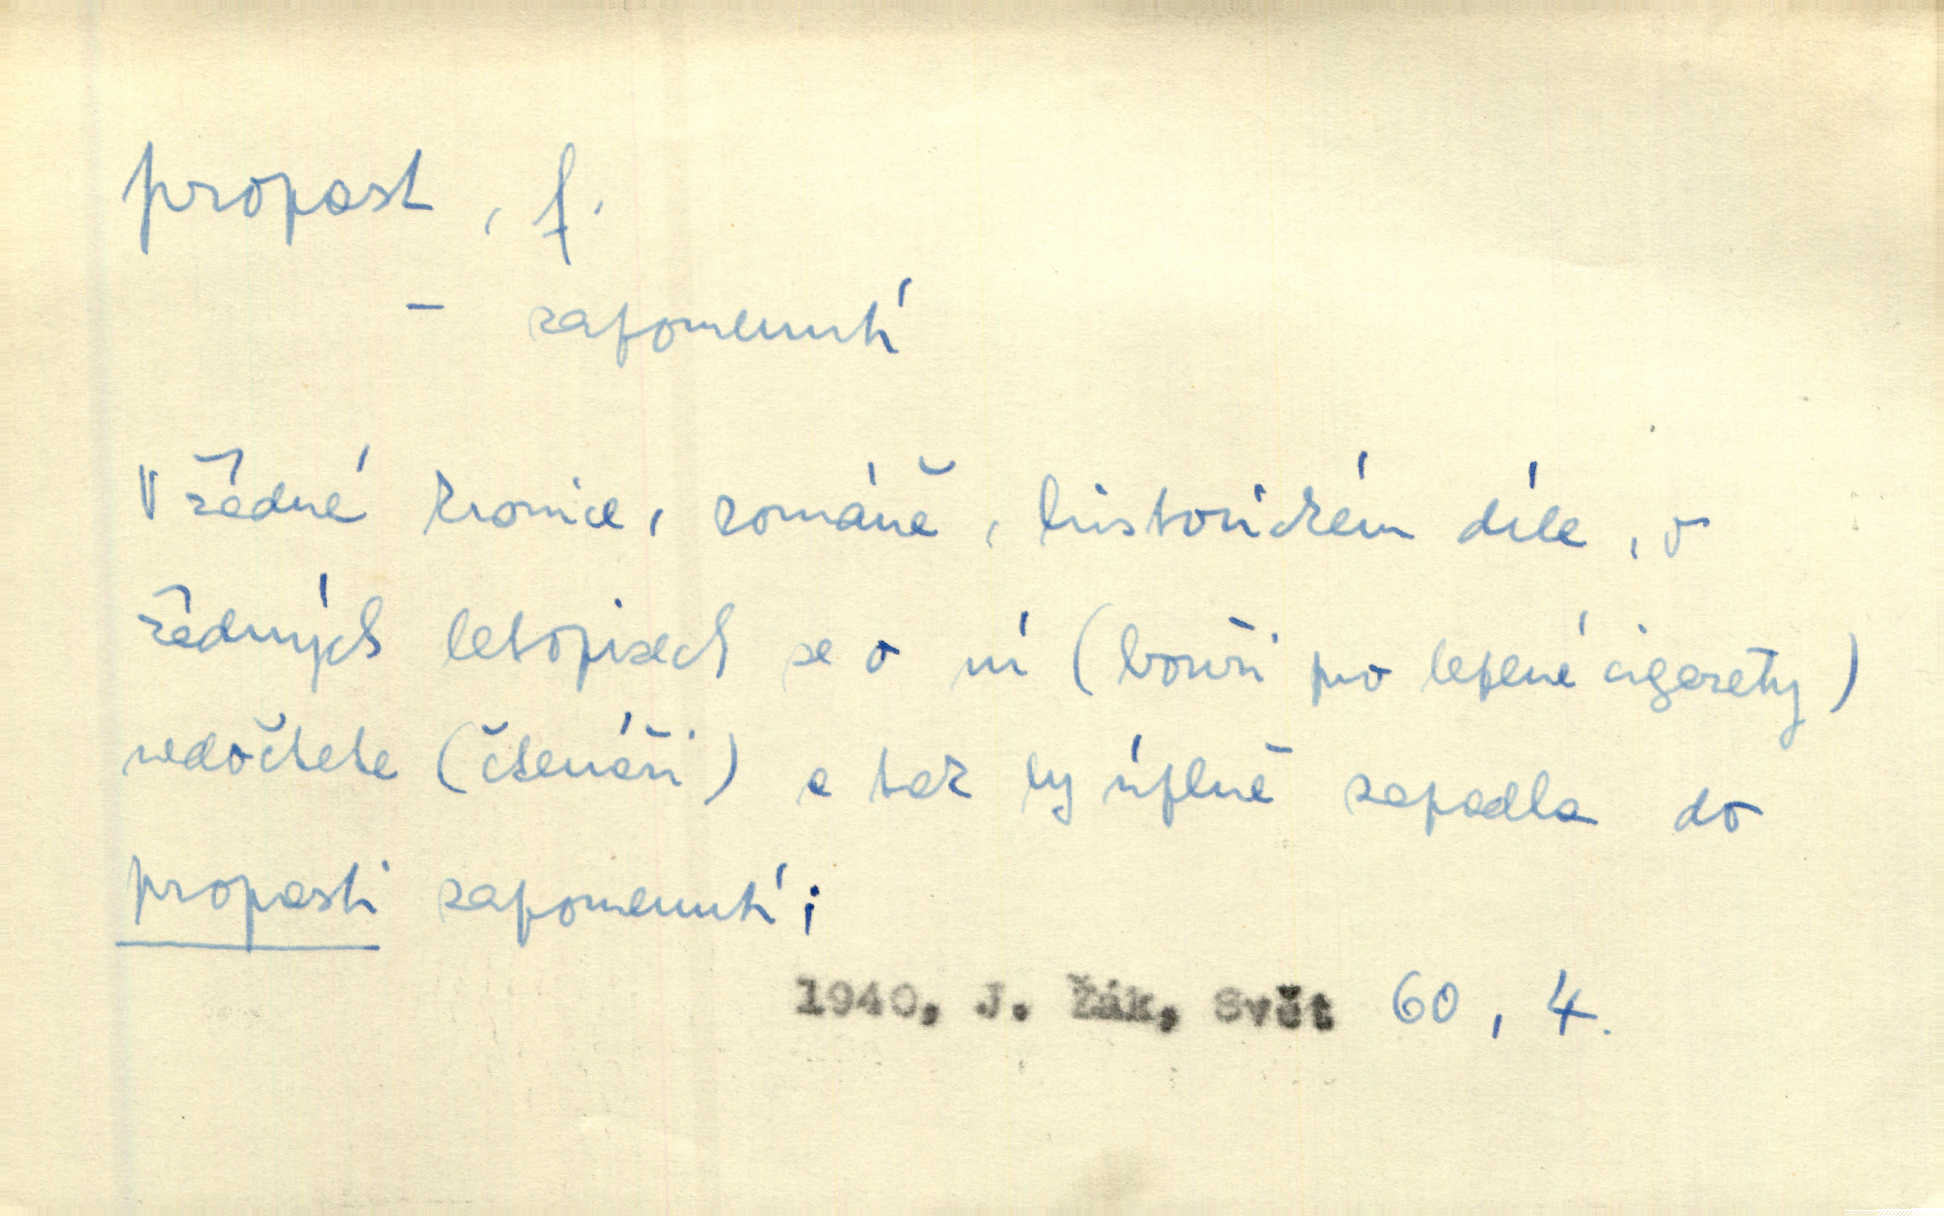 propast, f.
– zapomenutí
V žádné kronice, románě, historickém díle, v
žádných letopisech se o ní (bouři pro leplné cigarety)
nedočtete (čtenáři) a tak by úplně zapadla do
propasti zapomenutí;
1940, J. Žák, Svět 60, 4.